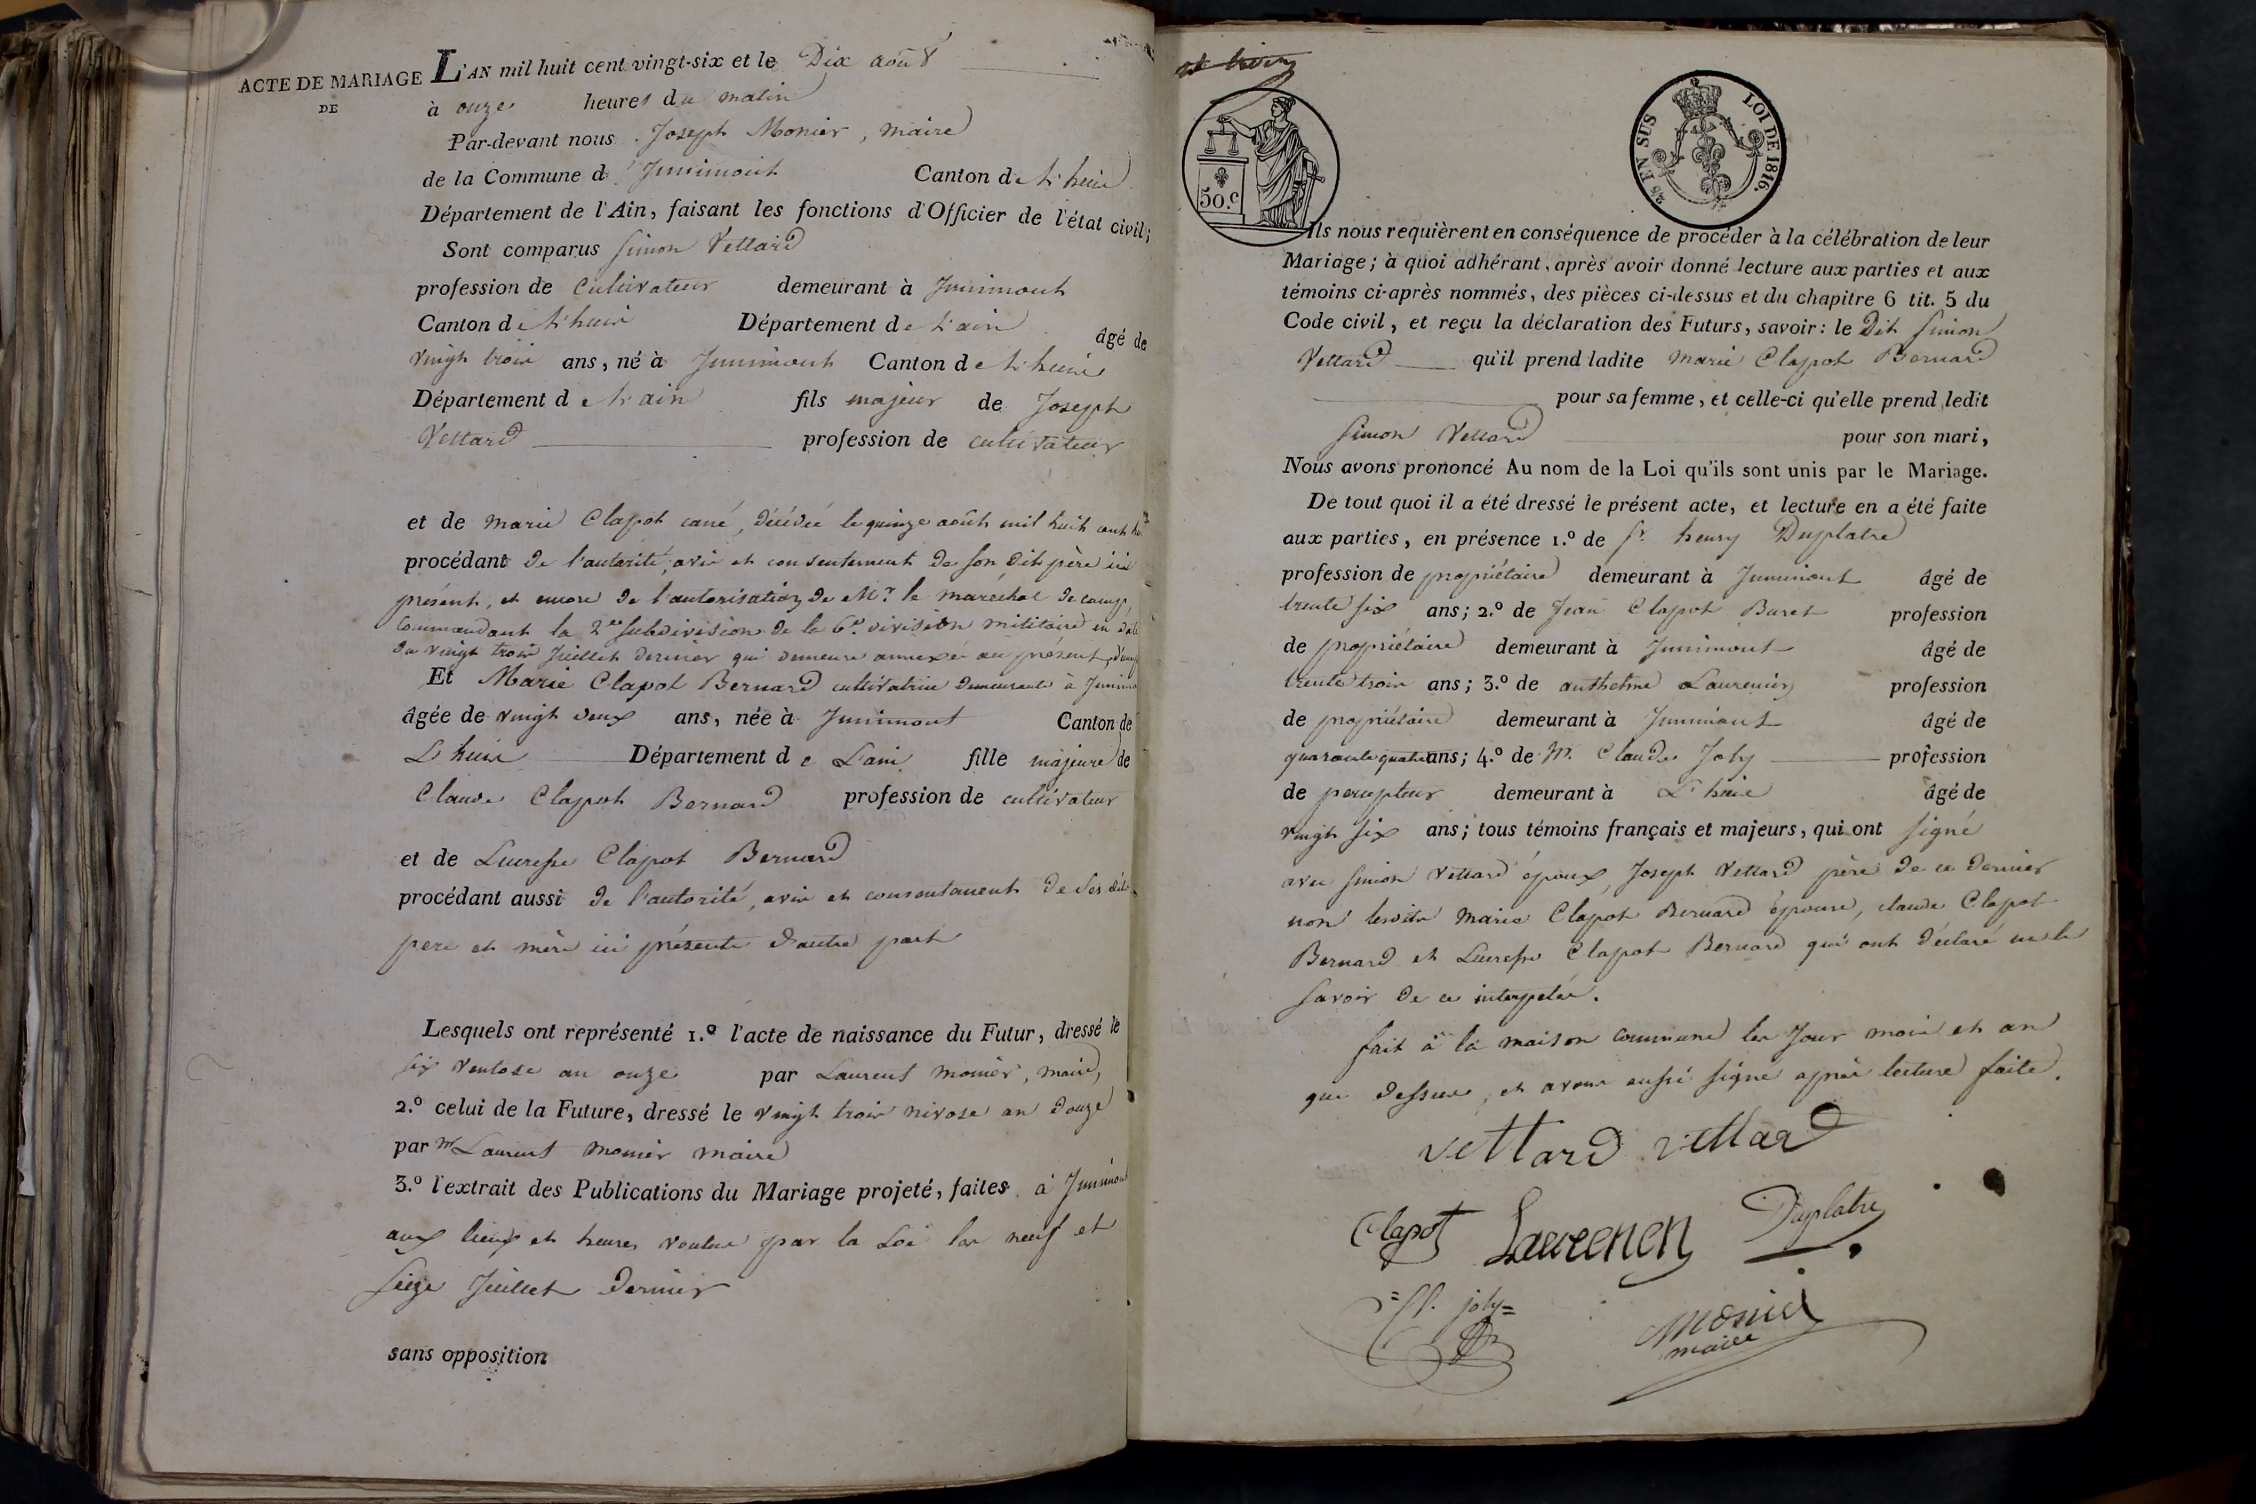 ACTE DE MARIAGE
DE
L'AN mil huit cent vingt-six et le Dix août
à onze heures du matin
Par-devant nous Joseph Monier, maire
de la Commune d'Junimont Canton de L'huis
Département de l'Ain, faisant les fonctions d'Officier de l'état civil;
Sont comparus Simon Vettard
profession de Cultivateur demeurant à Junimont
Canton de L'huis Département de L'ain âgé de
vingt trois ans, né à Junimont Canton de L'huis
Département de L'ain fils majeur de Joseph
Vettard profession de cultivateur
et de marie Clapot cané, décédée le quinze août mil huit cent
procédant de l'autorité, avis et consentement de son dit père ici
présent, et encore de l'autorisation de Mr le maréchal de camp
Commandant la 2me Subdivision de la 6e division militaire en date
du vingt trois Juillet dernier qui demeure annexée au présent,
Et Marie Clapot Bernard cultivatrice demeurante à
âgée de vingt deux ans, née à Junimont Canton de
L'huis Département de L'ain fille majeure de
Claude Clapot Bernard profession de cultivateur
et de Lucresse Clapot Bernard
procédant aussi de l'autorité, avis et consentement de ses dits
pere et mère ici présents d'autre part
Lesquels ont représenté 1.º l'acte de naissance du Futur, dressé le
six ventose an onze par Laurent monier, maire,
2.º celui de la Future, dressé le vingt trois nivose an douze
par Mr Laurent monier maire
3.º l'extrait des Publications du Mariage projeté, faites à Junimont
aux lieux et heures voulus par la Loi les neuf et
seize Juillet dernier
sans opposition
50.c
28 EN SUS LOI DE 1816.
Ils nous requièrent en conséquence de procéder à la célébration de leur
Mariage; à quoi adhérant, après avoir donné lecture aux parties et aux
témoins ci-après nommés, des pièces ci-dessus et du chapitre 6 tit. 5 du
Code civil, et reçu la déclaration des Futurs, savoir: le Dit Simon
Vettard qu'il prend ladite Marie Clapot Bernard
pour sa femme, et celle-ci qu'elle prend ledit
Simon Vettard pour son mari,
Nous avons prononcé Au nom de la Loi qu'ils sont unis par le Mariage.
De tout quoi il a été dressé le présent acte, et lecture en a été faite
aux parties, en présence 1.º de Sr henry Duplatre
profession de propriétaire demeurant à Junimont âgé de
trente six ans; 2.º de Jean Clapot Buret profession
de propriétaire demeurant à Junimont âgé de
trente trois ans; 3.º de anthelme Laurencin profession
de propriétaire demeurant à Junimont âgé de
quarante quatre ans; 4.º de Mr. Claude Joly profession
de percepteur demeurant à L'huis âgé de
vingt six ans; tous témoins français et majeurs, qui ont signé
avec Simon Vettard époux, Joseph Vettard père de ce dernier
non lesdits Marie Clapot Bernard épouse, claude Clapot
Bernard et Lucresse Clapot Bernard qui ont déclaré ne le
savoir de ce interpelés.
fait à la maison commune les Jour mois et an
que dessus, et avons aussi signé après lecture faite.
Vettard Vettard
Clapot Laurencin Duplatre
Cl. joly
Monier
maire